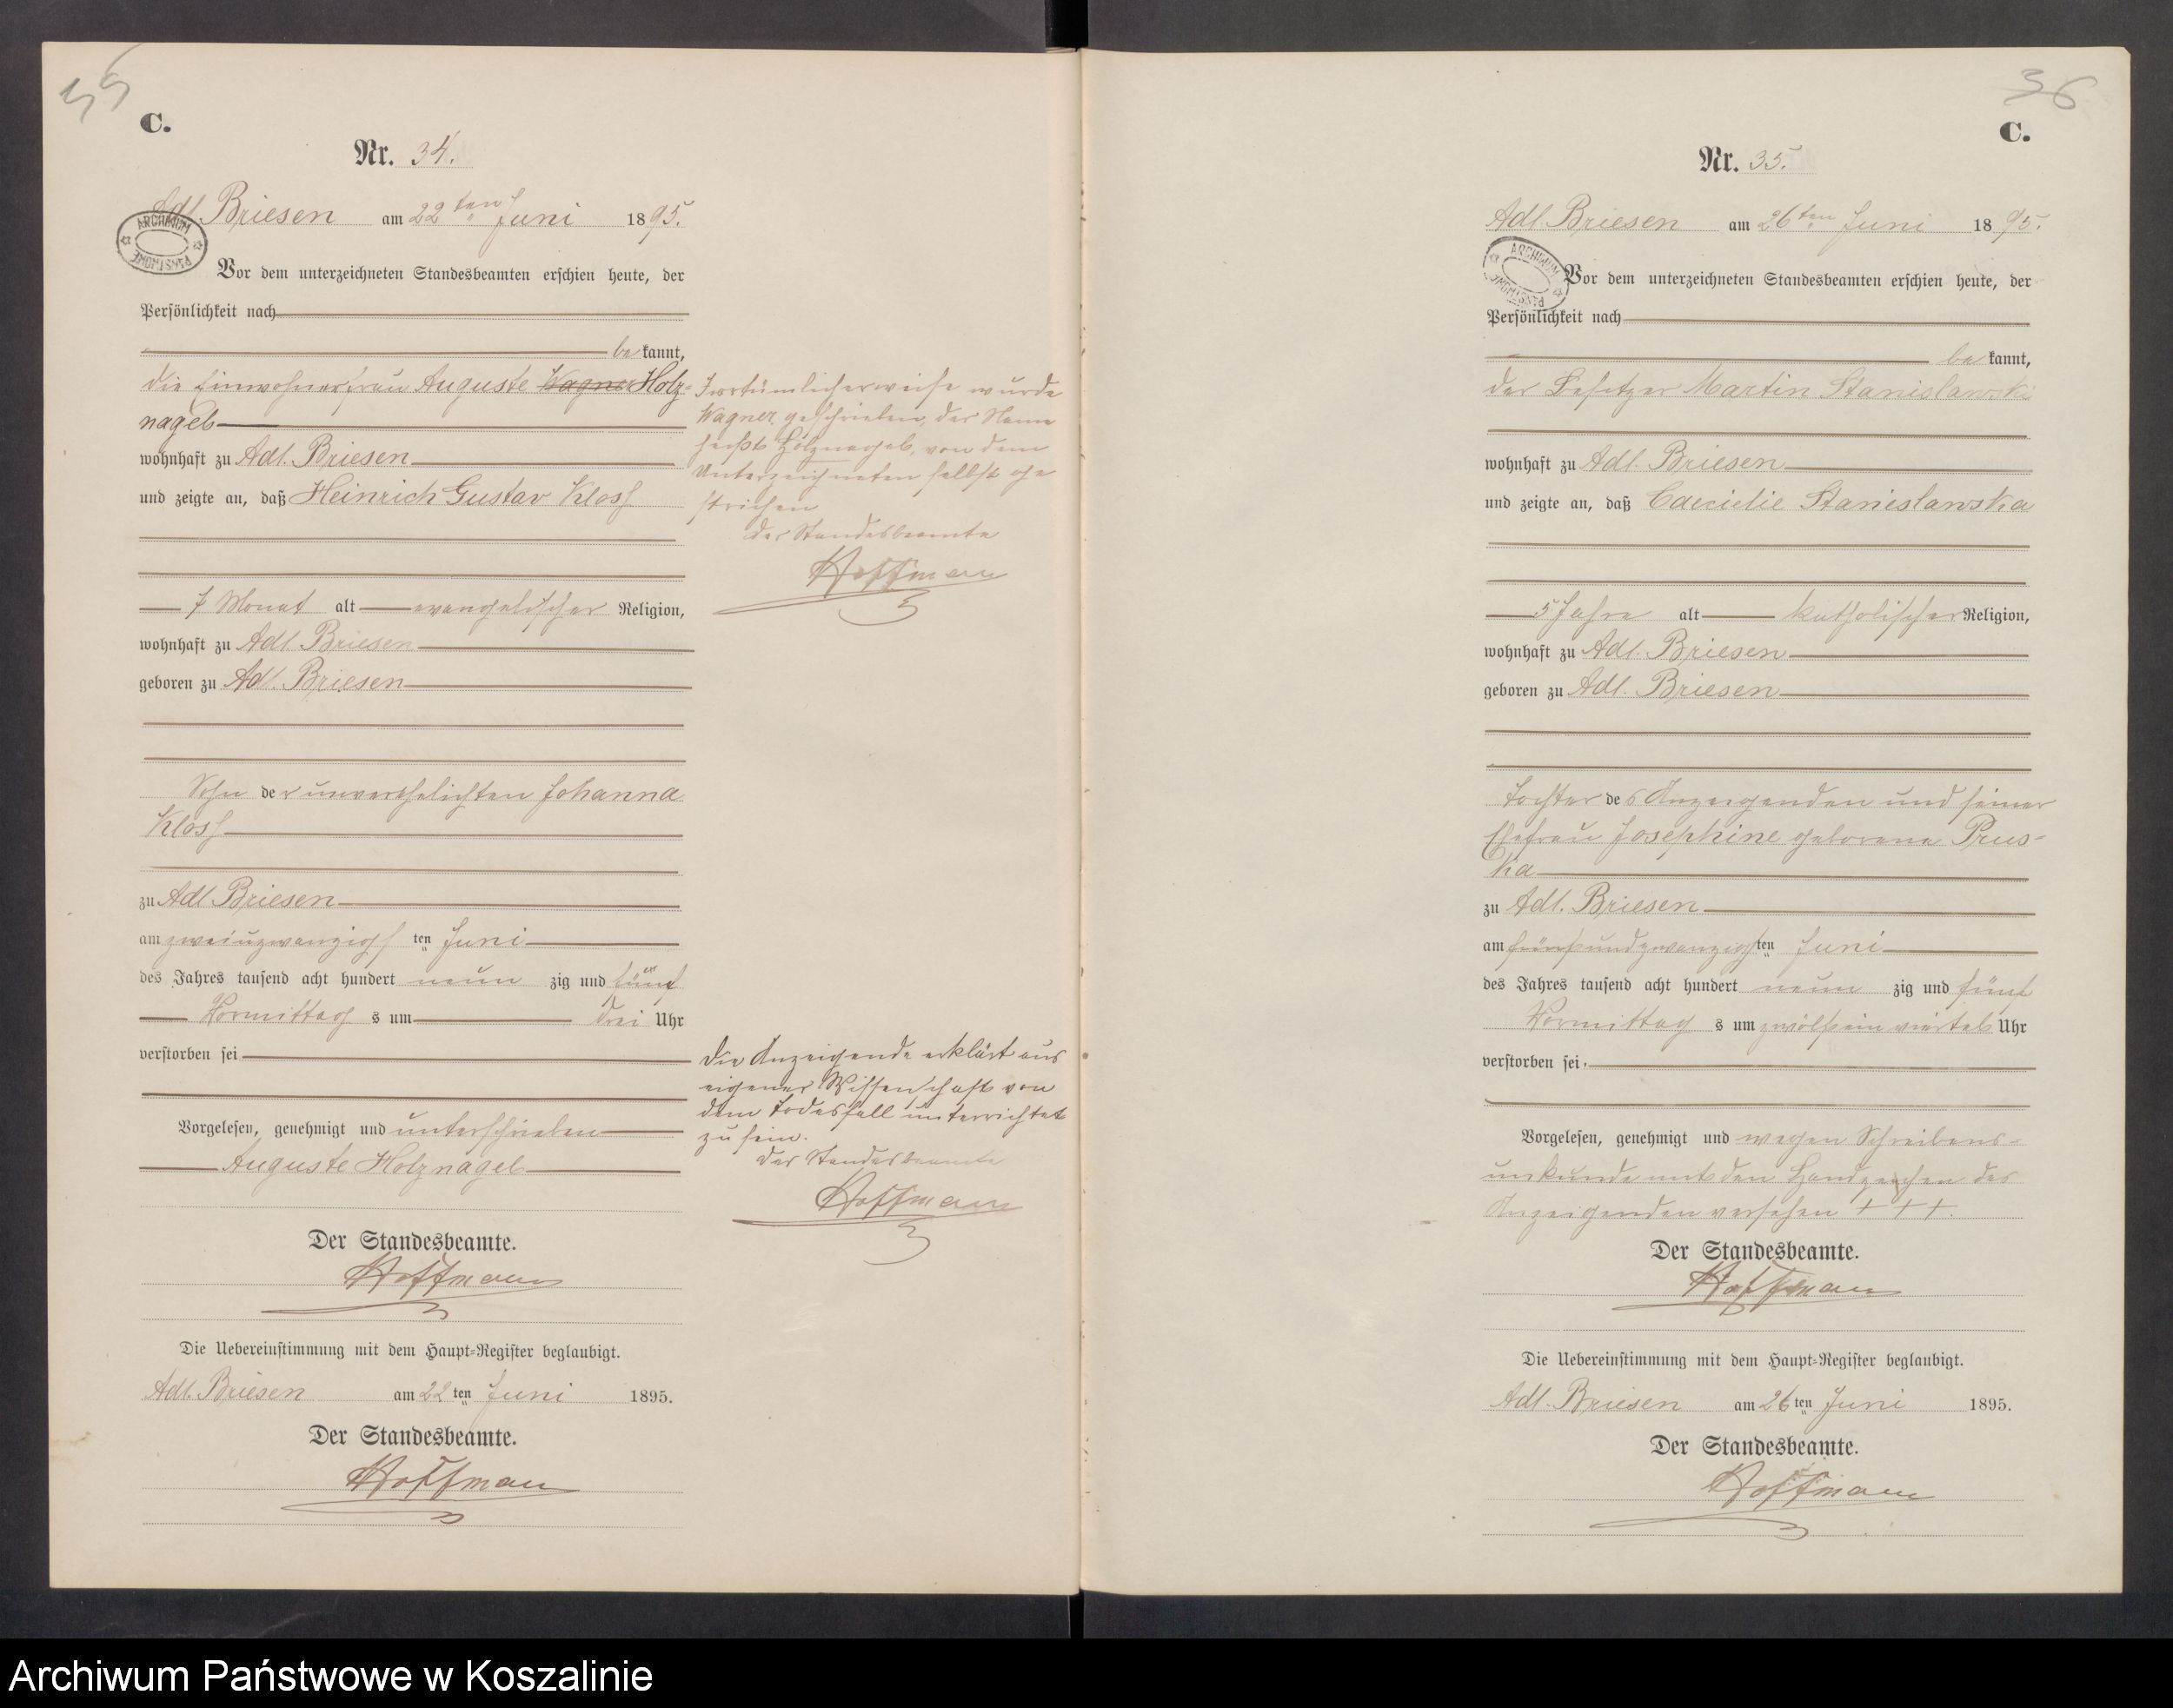 35
C.
Nr. 34.
Adl. Briesen am 22 ten Juni 1895.
Vor dem unterzeichneten Standesbeamten erschien heute, der
Persönlichkeit nach
be kannt,
die Einwohnerfrau Auguste Wagner Holz-
nagel
wohnhaft zu Adl. Briesen
und zeigte an, daß Heinrich Gustav Kloss
7 Monat alt evangelischer Religion,
wohnhaft zu Adl. Briesen
geboren zu Adl. Briesen
Sohn der unverehelichten Johanna
Kloss
zu Adl. Briesen
am zweiuzwanzigsten Juni
des Jahres tausend acht hundert neun zig und fünf
Vormittag s um drei Uhr
verstorben sei
Vorgelesen, genehmigt und unterschrieben
Auguste Holznagel
Der Standesbeamte.
Hoffmann
Die Uebereinstimmung mit dem Haupt-Register beglaubigt.
Adl. Briesen am 22 ten Juni 1895.
Der Standesbeamte.
Hoffmann
Irrtümlicherweise wurde
Wagner geschrieben, der Name
heißt Holznagel, von dem
Unterzeichneten selbst ge
strichen
Der Standesbeamte
Hoffmann
Die Anzeigende erklärt aus
eigener Wissenschaft von
dem Todesfall unterrichtet
zu sein.
Der Standesbeamte
Hoffmann
36
C.
Nr. 35.
Adl. Briesen am 26 ten Juni 1895.
Vor dem unterzeichneten Standesbeamten erschien heute, der
Persönlichkeit nach
be kannt,
der Besitzer Martin Stanislawski
wohnhaft zu Adl. Briesen
und zeigte an, daß Caecielie Stanislawska
5 Jahre alt katholischer Religion,
wohnhaft zu Adl. Briesen
geboren zu Adl. Briesen
Tochter des Anzeigenden und seiner
Ehefrau Josephine geborene Prus-
ka
zu Adl. Briesen
am fünfundzwanzigsten Juni
des Jahres tausend acht hundert neun zig und fünf
Vormittag s um zwölfeinviertel Uhr
verstorben sei
Vorgelesen, genehmigt und wegen Schreibens-
unkunde mit den Handzeichen des
Anzeigenden versehen + + +.
Der Standesbeamte.
Hoffmann
Die Uebereinstimmung mit dem Haupt-Register beglaubigt.
Adl. Briesen am 26 ten Juni 1895.
Der Standesbeamte.
Hoffmann
ARCHIWUM PAŃSTWOWE
ARCHIWUM PAŃSTWOWE
Archiwum Państwowe w Koszalinie